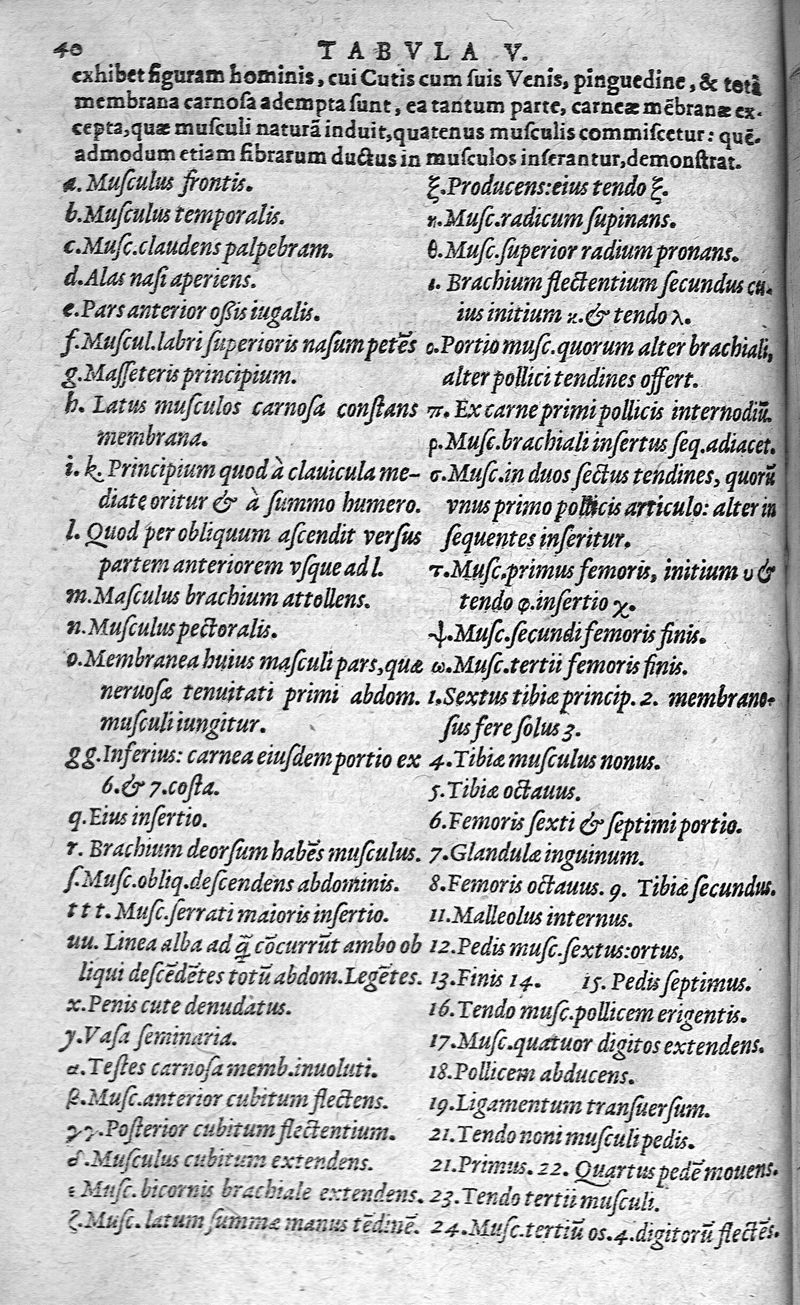 40
TABVLA V.
exhibet figuram hominis, cui Cutis cum ſuis Venis, pinguedine, & totā
membrana carnoſa adempta ſunt, ea tantum parte, carneæ mēbranæ ex-
cepta, quæ muſculi naturā induit, quatenus muſculis commiſcetur: quē-
admodum etiam fibrarum ductus in muſculos inſerantur, demonſtrat.
a. Muſculus frontis.
b. Muſculus temporalis.
c. Muſc. claudens palpebram.
d. Alas naſi aperiens.
e. Pars anterior oßis iugalis.
f. Muſcul. labri ſuperioris naſum petēs
g. Maſſeteris principium.
h. Latus muſculos carnoſa conſtans
membrana.
i. k. Principium quod à clauicula me-
diatę oritur & à ſummo humero.
l. Quod per obliquum aſcendit verſus
partem anteriorem vſque ad l.
m. Maſculus brachium attollens.
n. Muſculus pectoralis.
o. Membranea huius maſculi pars, quæ
neruoſæ tenuitati primi abdom.
muſculi iungitur.
gg. Inferius: carnea eiuſdem portio ex
6. & 7. coſta.
q. Eius inſertio.
r. Brachium deorſum habēs muſculus.
ſ. Muſc. obliq. deſcendens abdominis.
t t t. Muſc. ſerrati maioris inſertio.
uu. Linea alba ad q̄ā cōcurrūt ambo ob
liqui deſcēdētes totū abdom. Legētes.
x. Penis cute denudatus.
y. Vaſa ſeminaria.
α. Teſtes carnoſa memb. inuoluti.
β. Muſc. anterior cubitum flectens.
γγ. Poſterior cubitum flectentium.
δ. Muſculus cubitum extendens.
ε Muſc. bicornis brachiale extendens.
ζ. Muſc. latum ſummæ manus tēdinē.
ξ. Producens: eius tendo ξ.
η. Muſc. radicum ſupinans.
θ. Muſc. ſuperior radium pronans.
ι. Brachium flectentium ſecundus cu-
ius initium ϰ. & tendo λ.
o. Portio muſc. quorum alter brachiali,
alter pollici tendines offert.
π. Ex carne primi pollicis internodiū.
ρ. Muſc. brachiali inſertus ſeq. adiacet.
σ. Muſc. in duos ſectus tendines, quorū
vnus primo pollicis articulo: alter in
ſequentes inſeritur.
τ. Muſc. primus femoris, initium υ &
tendo φ. inſertio χ.
ψ. Muſc. ſecundi femoris finis.
ω. Muſc. tertii femoris finis.
1. Sextus tibiæ princip. 2. membrano-
ſus fere ſolus 3.
4. Tibiæ muſculus nonus.
5. Tibiæ octauus.
6. Femoris ſexti & ſeptimi portio.
7. Glandulæ inguinum.
8. Femoris octauus. 9. Tibiæ ſecundus.
11. Malleolus internus.
12. Pedis muſc. ſextus: ortus,
13. Finis 14. 15. Pedis ſeptimus.
16. Tendo muſc. pollicem erigentis.
17. Muſc. quatuor digitos extendens.
18. Pollicem abducens.
19. Ligamentum tranſuerſum.
21. Tendo noni muſculi pedis.
21. Primus. 22. Quartus pedē mouens.
23. Tendo tertii muſculi.
24. Muſc. tertiū os. 4. digitorū flectēs.